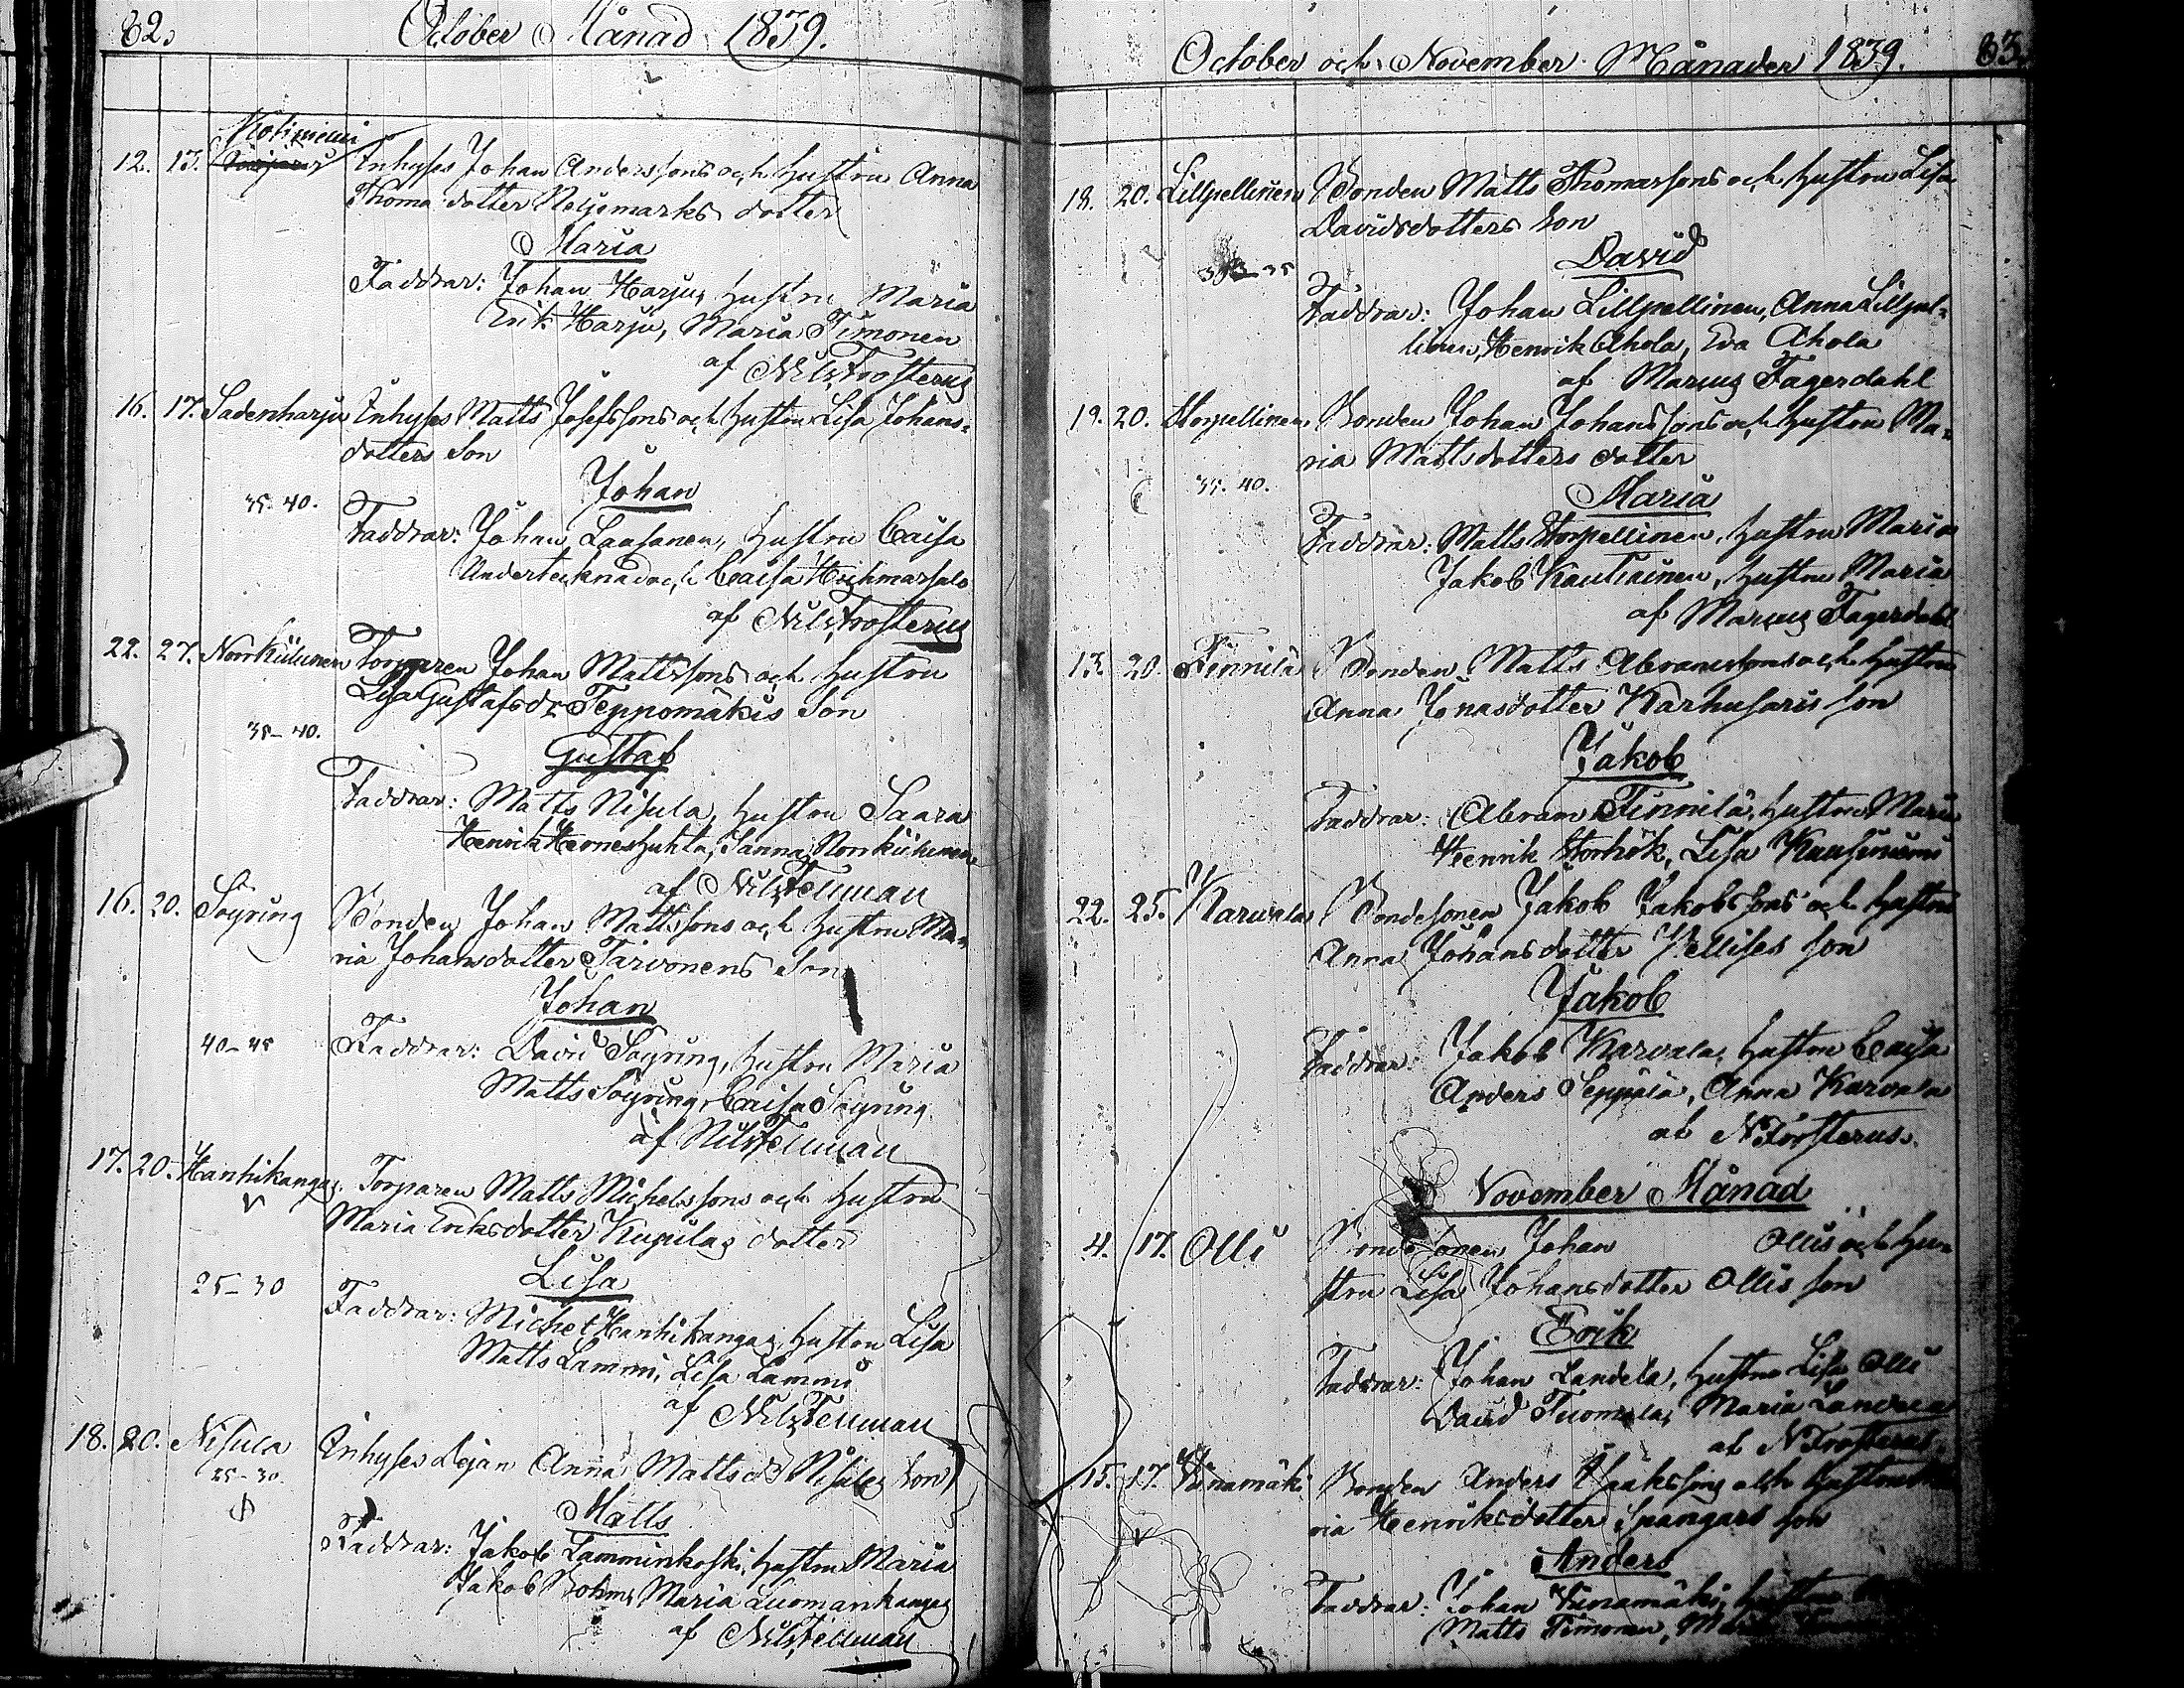 82.
October Månad 1839.
Kotiniemi
12. 13. Inhyses Johan Anderssons och hustru Anna
Thomædotter Neljemarks dotter
Maria
Faddrar: Johan Harju, hustru Maria
Erik Harju, Maria Timonen
af Nils Frosterus
16. 17. Sadenharju Inhyses Matts Josefssons och hustru Lisa Johans-
dotters son
Johan
35-40.
Faddrar: Johan Laasanen, hustru Caisa
Undertecknad och Caisa
af Nils Frosterus
22. 27. Norrkiilunen Torparen Johan Mattssons och hustru
Lisa Gustafsdr Teppomäkis son
35-40.
Gustaf
Faddrar: Matts Nisula, hustru Saara
Henrik Herneshuhta, Sanna Norrkiilunen
af Nils Fellman
16. 20. Söyring Bonden Johan Mattssons och hustru Ma-
ria Johansdotter Tarvonens son
Johan
40-45
Faddrar: David Söyring, hustru Maria
Matts Söyring, Caisa Söyring
af Nils Fellman
17. 20. Hanhikangas Torparen Matts Michelssons och hustru
Maria Eriksdotter Kujulas dotter
Lisa
25-30
Faddrar: Michel Hanhikangas, hustru Lisa
Matts Lammi, Lisa Lammi
af Nils Fellman
18. 20. Nisula Inhyses Pigan Anna Mattsdr Nisulas son
25-30.
Matts
Faddrar: Jakob Lamminkoski, hustru Maria
Jakob Bohm, Maria Luomankangas
af Nils Fellman
October och November Månader 1839. 83.
18. 20. Lillpellinen Bonden Matts Thomassons och hustru Lisa
Davidsdotters son
David
35
Faddrar: Johan Lillpellinen, Anna Lillpel-
linen, Henrik Ahola, Eva Ahola
af Marcus Fagerdahl
19. 20. Storpellinen Bonden Johan Johanssons och hustru Ma-
ria Mattsdotters dotter
35-40.
Maria
Faddrar: Matts Storpellinen, hustru Maria
Jakob Kautiainen, hustru Maria
af Marcus Fagerdahl
13. 20. Finnilä Bonden Matts Abramssons och hustru
Anna Jonasdotter Karhusaris son
Jakob
Faddrar: Abram Finnilä, hustru Maria
Henrik Storhök, Lisa Kausiniemi
22. 25. Karvala Bondesonen Jakob Jakobssons och hustru
Anna Johansdotter Pellises son
Jakob
Faddrar: Jakob Karvala, hustru Caisa
Anders Seppälä, Anna Karvala
af N Frosterus.
November Månad
4. 17. Olli Bondesonen Johan Ollis och hu-
stru Lisa Johansdotter Ollis son
Erik
Faddrar: Johan Landela, hustru Lisa Olli
David Tuomela, Maria Landela
af N Frosterus.
15. 17. Viinamäki Bonden Anders Isakssons och hustru Ma-
ria Henriksdotter Spangars son
Anders
Faddrar: Johan Viinamäki, hustru
Matts Timonen, Maria